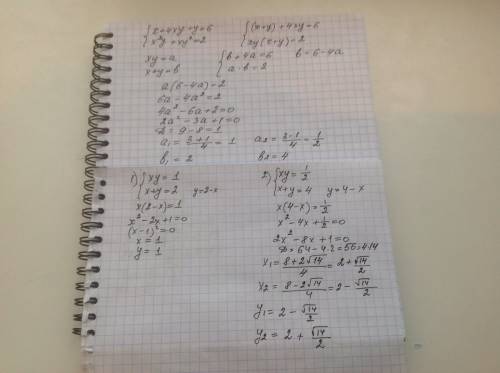 {x+4xy+y=6 {(x+y)+4xy=6
{x²y+xy²=2 {xy(x+y)=2
xy=a {b+4a=6 b=6-4a
x+y=b {a·b=2
a(6-4a)=2
6a-4a²=2
4a²-6a+2=0
2a²-3a+1=0
D=9-8=1
a₁=(3+1)/4=1 a₂=(3-1)/4=1/2
b₁=2 b₂=4
1) {xy=1
{x+y=2 y=2-x
x(2-x)=1
x²-2x+1=0
(x-1)²=0
x=1
y=1
2) {xy=1/2
{x+y=4 y=4-x
x(4-x)=1/2
x²-4x+1/2=0
2x²-8x+1=0
D=64-4·2=56=4·14
x₁=(8+2√14)/4=2+√14/2
x₂=(8-2√14)/4=2-√14/2
y₁=2-√14/2
y₂=2+√14/2